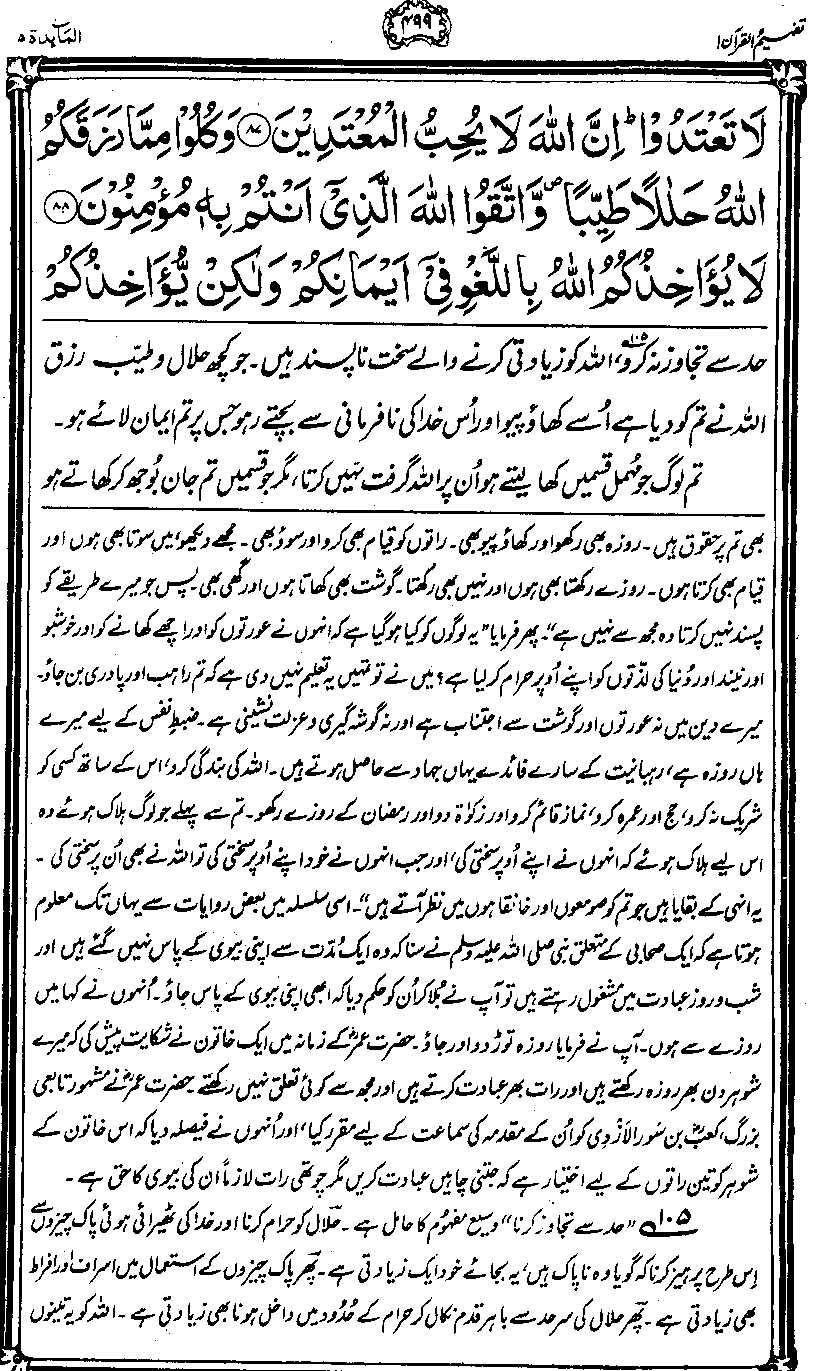 تفہیم القرآن ۱
۴۹۹
المآئدۃ ۵
لَا تَعْتَدُوْا ؕ اِنَّ اللّٰهَ لَا يُحِبُّ الْمُعْتَدِيْنَ ﴿۸۷﴾ وَكُلُوْا مِمَّا رَزَقَكُمُ
اللّٰهُ حَلٰلًا طَيِّبًا ۪ وَّاتَّقُوا اللّٰهَ الَّذِيْۤ اَنْتُمْ بِهٖ مُؤْمِنُوْنَ ﴿۸۸﴾
لَا يُؤَاخِذُكُمُ اللّٰهُ بِاللَّغْوِ فِيْۤ اَيْمَانِكُمْ وَلٰكِنْ يُّؤَاخِذُكُمْ
حد سے تجاوز نہ کرو۱۰۵، اللہ کو زیادتی کرنے والے سخت ناپسند ہیں۔ جو کچھ حلال و طیّب رزق
اللہ نے تم کو دیا ہے اُسے کھاؤ پیو اور اُس خدا کی نافرمانی سے بچتے رہو جس پر تم ایمان لائے ہو۔
تم لوگ جو مُہمل قسمیں کھا لیتے ہو اُن پر اللہ گرفت نہیں کرتا، مگر جو قسمیں تم جان بُوجھ کر کھاتے ہو
بھی تم پر حقوق ہیں۔ روزہ بھی رکھو اور کھاؤ پیو بھی۔ راتوں کو قیام بھی کرو اور سوؤ بھی۔ مجھے دیکھو‘ میں سوتا بھی ہوں اور
قیام بھی کرتا ہوں۔ روزے رکھتا بھی ہوں اور نہیں بھی رکھتا۔ گوشت بھی کھاتا ہوں اور گھی بھی۔ پس جو میرے طریقے کو
پسند نہیں کرتا وہ مجھ سے نہیں ہے“۔ پھر فرمایا ”یہ لوگوں کو کیا ہو گیا ہے کہ انہوں نے عورتوں کو اور اچھے کھانے کو اور خوشبو
اور نیند اور دُنیا کی لذّتوں کو اپنے اُوپر حرام کر لیا ہے؟ میں نے تو تمہیں یہ تعلیم نہیں دی ہے کہ تم راہب اور پادری بن جاؤ۔
میرے دین میں نہ عورتوں اور گوشت سے اجتناب ہے اور نہ گوشہ گیری و عزلت نشینی ہے۔ ضبطِ نفس کے لیے میرے
ہاں روزہ ہے‘ رہبانیت کے سارے فائدے یہاں جہاد سے حاصل ہوتے ہیں۔ اللہ کی بندگی کرو‘ اس کے ساتھ کسی کو
شریک نہ کرو‘ حج اور عمرہ کرو‘ نماز قائم کرو اور زکوٰۃ دو اور رمضان کے روزے رکھو۔ تم سے پہلے جو لوگ ہلاک ہوئے وہ
اس لیے ہلاک ہوئے کہ انہوں نے اپنے اُوپر سختی کی‘ اور جب انہوں نے خود اپنے اُوپر سختی کی تو اللہ نے بھی اُن پر سختی کی۔
یہ انہی کے بقایا ہیں جو تم کو صومعوں اور خانقاہوں میں نظر آتے ہیں“۔ اسی سلسلہ میں بعض روایات سے یہاں تک معلوم
ہوتا ہے کہ ایک صحابی کے متعلق نبی صلی اللہ علیہ وسلم نے سنا کہ وہ ایک مُدّت سے اپنی بیوی کے پاس نہیں گئے ہیں اور
شب و روز عبادت میں مشغول رہتے ہیں تو آپ نے بُلا کر اُن کو حکم دیا کہ ابھی اپنی بیوی کے پاس جاؤ۔ اُنہوں نے کہا میں
روزے سے ہوں۔ آپ نے فرمایا روزہ توڑ دو اور جاؤ۔ حضرت عمرؓ کے زمانہ میں ایک خاتون نے شکایت پیش کی کہ میرے
شوہر دن بھر روزہ رکھتے ہیں اور رات بھر عبادت کرتے ہیں اور مجھ سے کوئی تعلق نہیں رکھتے۔ حضرت عمرؓ نے مشہور تابعی
بزرگ‘ کعبؓ بن سَور الاَزْدِی کو اُن کے مقدمہ کی سماعت کے لیے مقرر کیا‘ اور اُنہوں نے فیصلہ دیا کہ اس خاتون کے
شوہر کو تین راتوں کے لیے اختیار ہے کہ جتنی چاہیں عبادت کریں مگر چوتھی رات لازماً اُن کی بیوی کا حق ہے۔
۱۰۵ ”حد سے تجاوز کرنا“ وسیع مفہُوم کا حامل ہے۔ حلال کو حرام کرنا اور خدا کی ٹھیرائی ہوئی پاک چیزوں سے
اِس طرح پرہیز کرنا کہ گویا وہ ناپاک ہیں‘ یہ بجائے خود ایک زیادتی ہے۔ پھر پاک چیزوں کے استعمال میں اسراف اور افراط
بھی زیادتی ہے۔ پھر حلال کی سرحد سے باہر قدم نکال کر حرام کے حُدُود میں داخل ہونا بھی زیادتی ہے۔ اللہ کو یہ تینوں